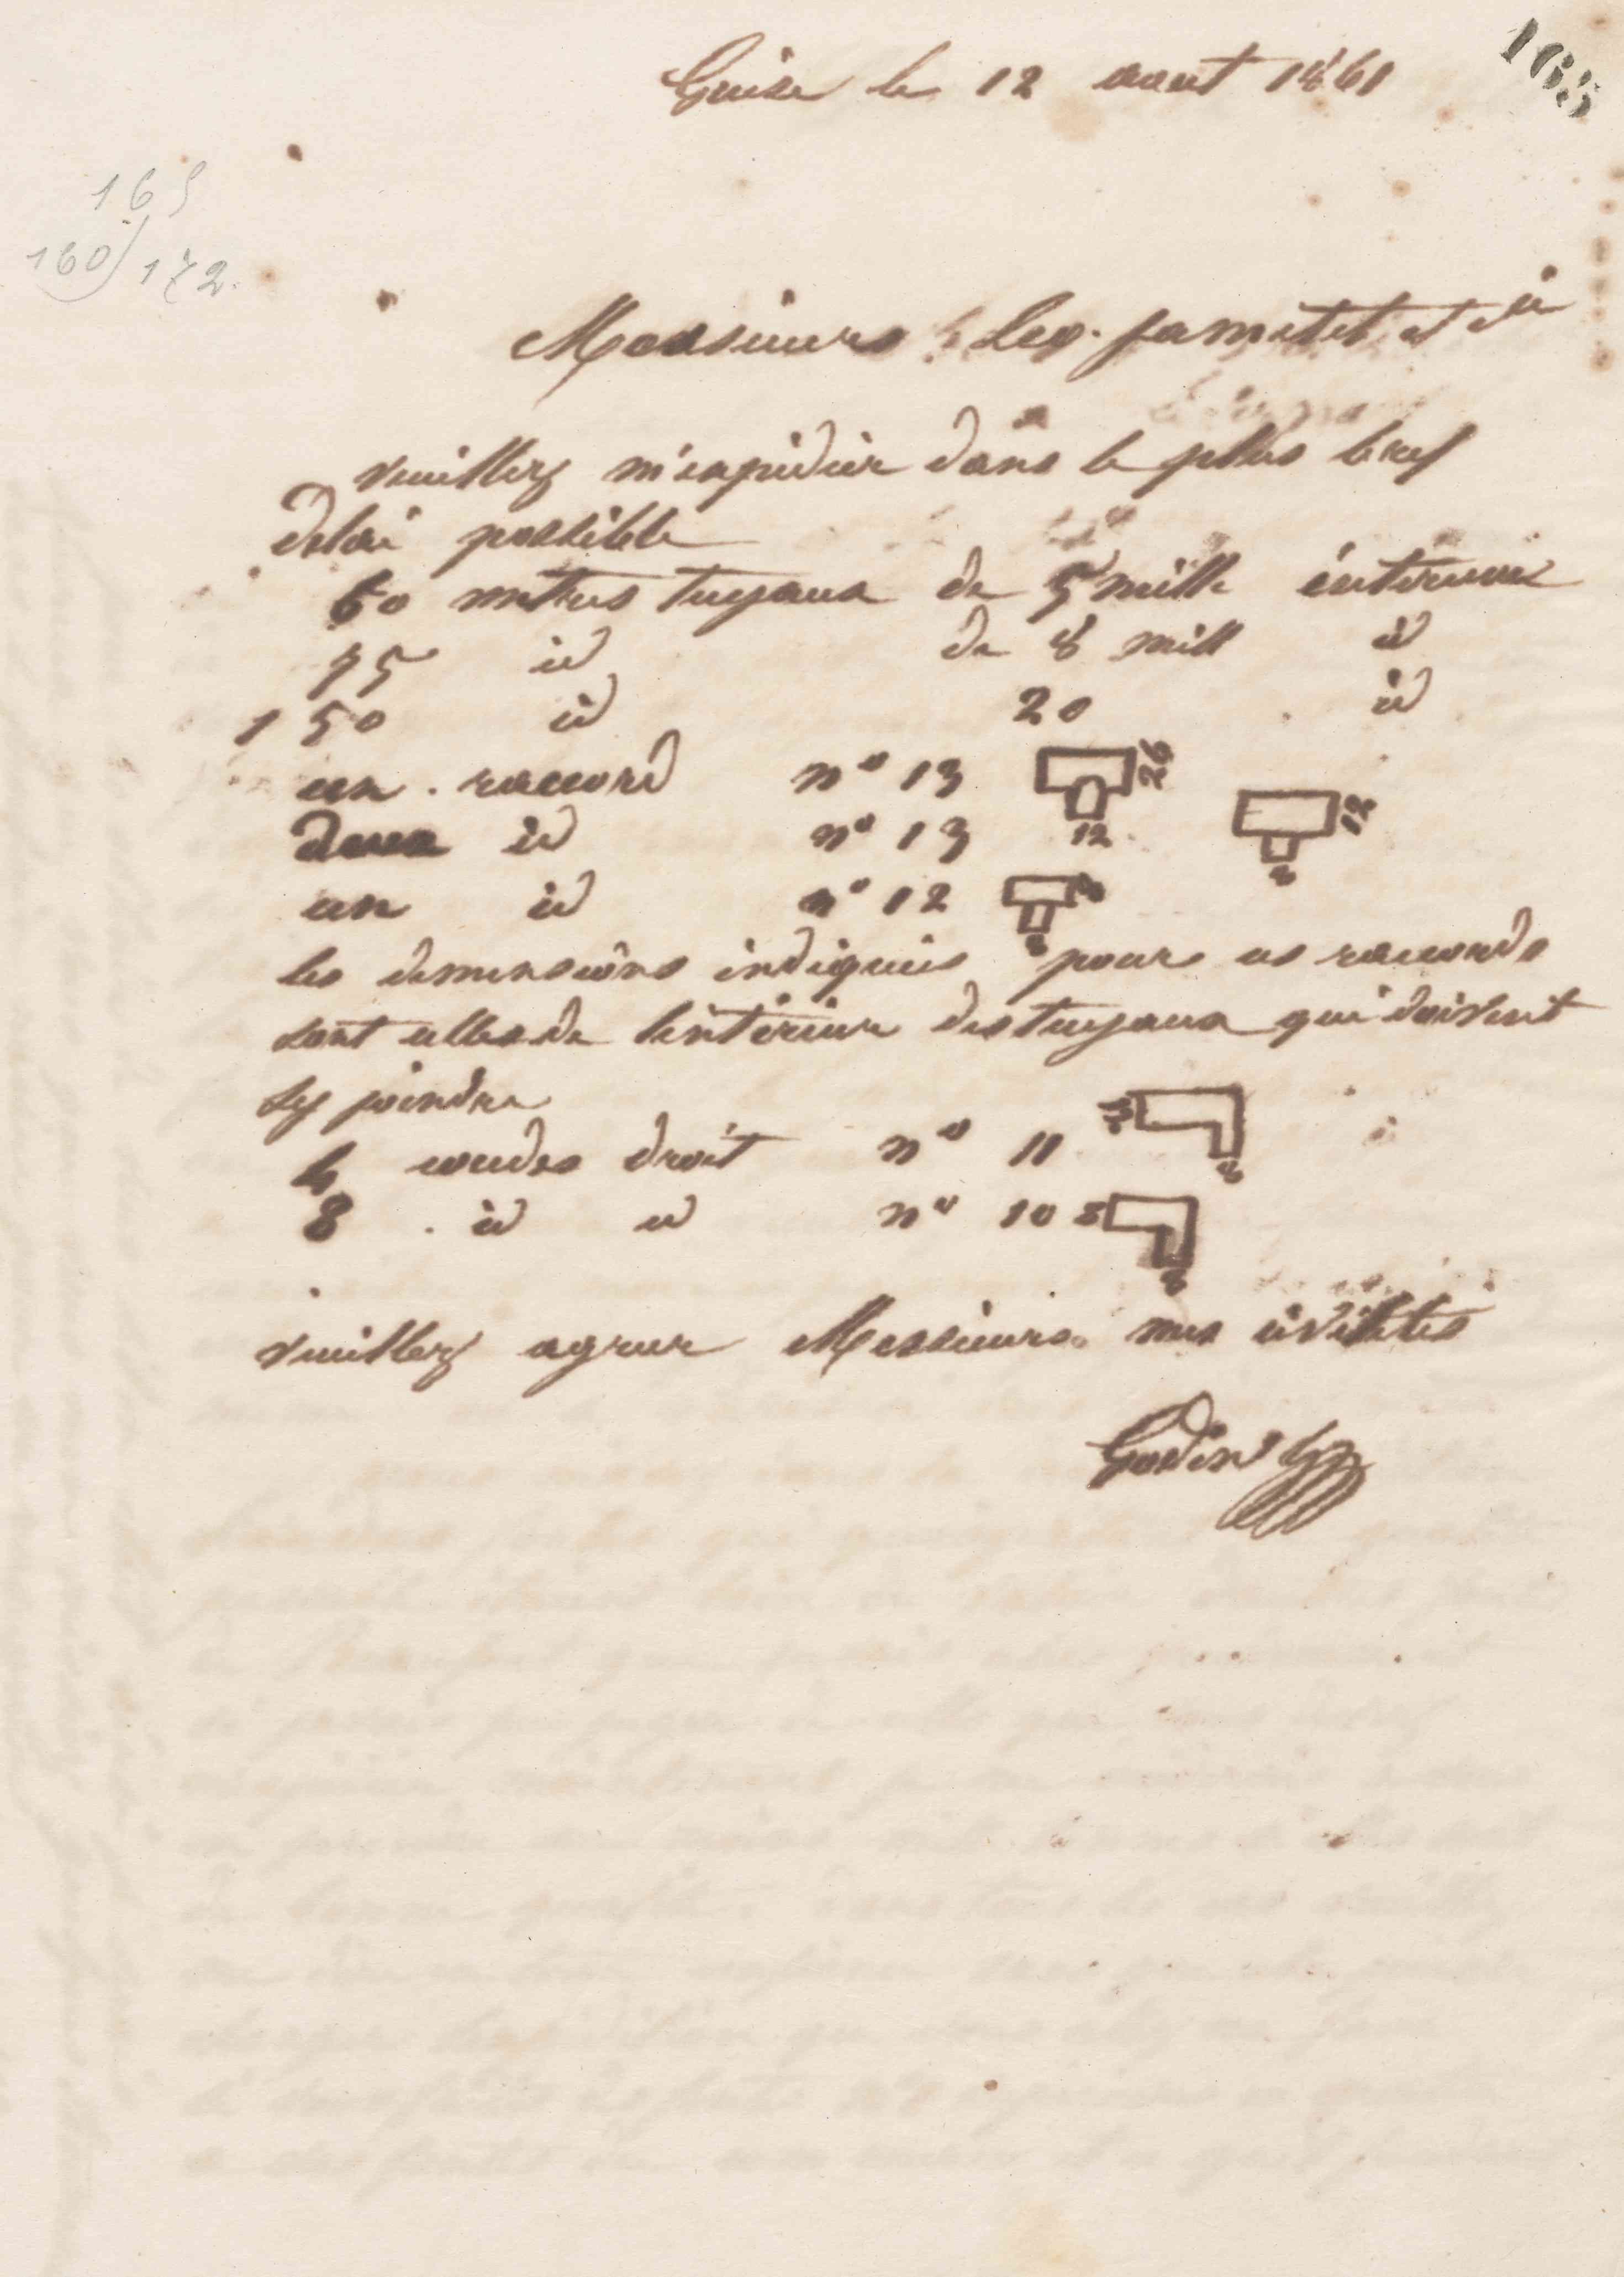 165
Guise le 12 aout 1861
165
160/172.
Messieurs Leg. jametel et cie
veuillez m'expédier dans le plus bref
delai possible
60 metres tuyaux de 5 mill interieur
75 id de 8 mill id
150 id 20 id
un raccord n° 13 26
12
deux id n° 13 12
8
un id n° 12 8
8
les dimensions indiquées pour ces raccords
sont celles de linterieur des tuyaux qui doivent
sy joindre
4 coudes droit n° 11
8
8 id id n° 10 8
8
veuillez agreer Messieurs mes civilités
Godin